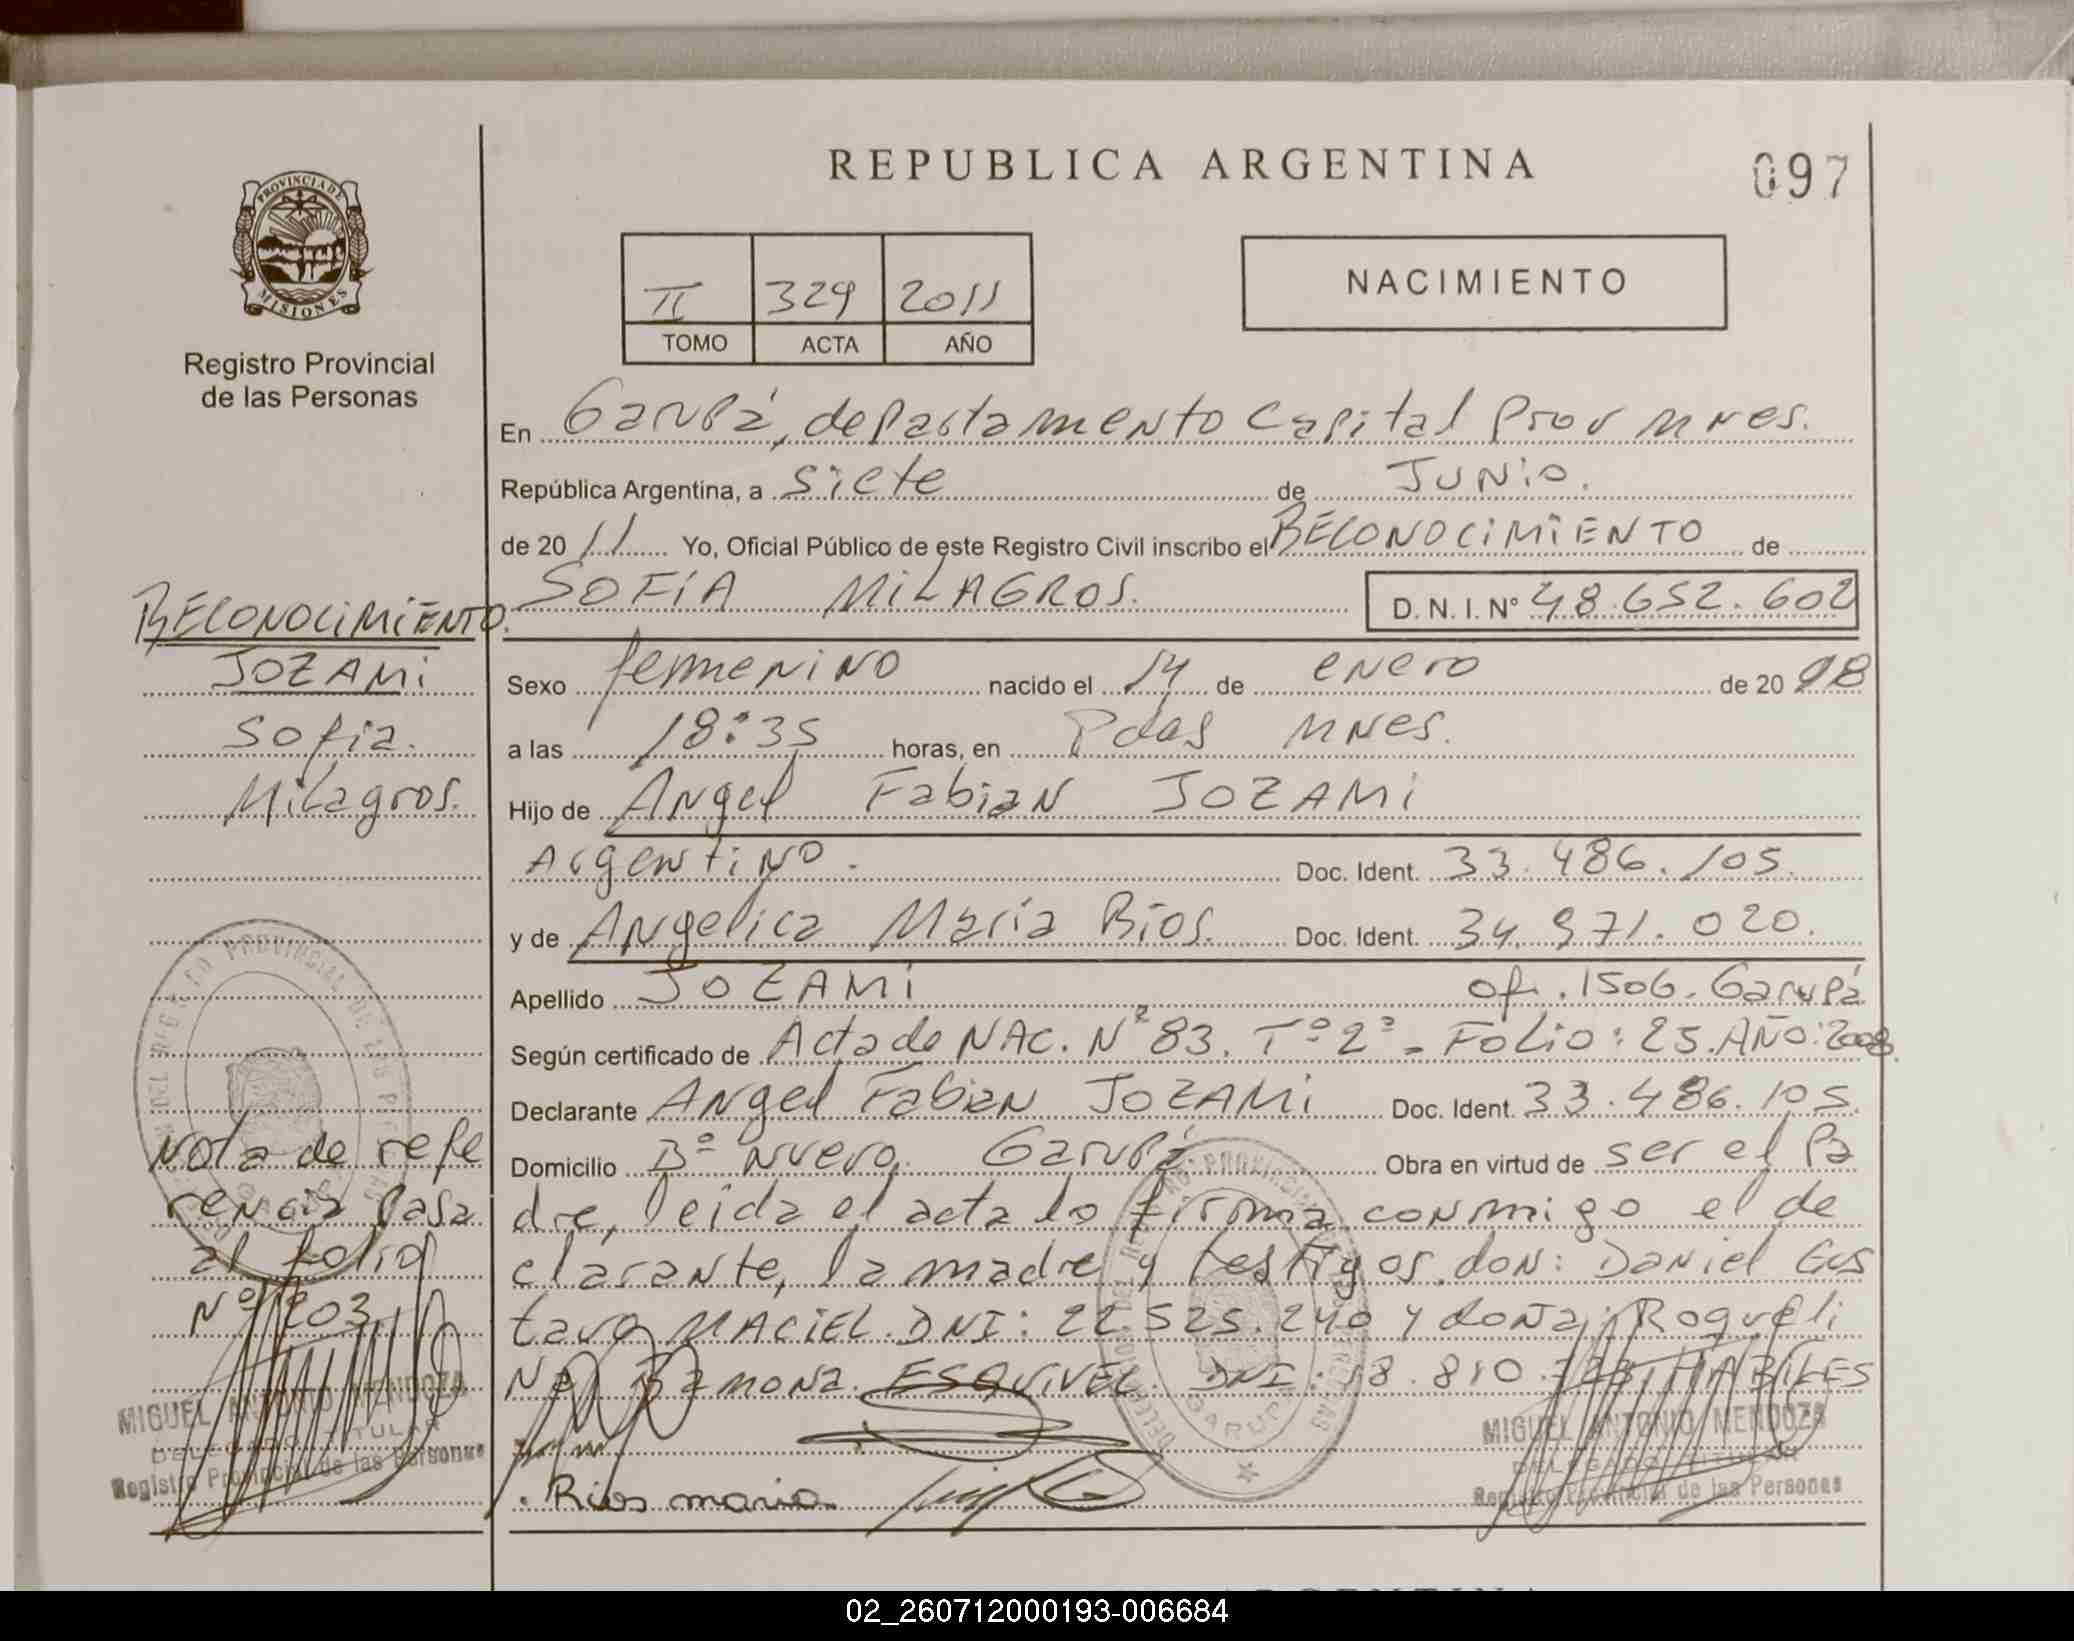 REPUBLICA ARGENTINA
097
PROVINCIA DE
MISIONES
Registro Provincial
de las Personas
II 329 2011
TOMO ACTA AÑO
NACIMIENTO
En Garupá, departamento Capital Prov Mnes.
República Argentina, a siete de Junio.
de 20 11 Yo, Oficial Público de este Registro Civil inscribo el RECONOCIMIENTO de
SOFIA MILAGROS. D. N. I. N° 48.652.602
RECONOCIMIENTO.
JOZAMI
Sofia
Milagros.
Sexo femenino nacido el 14 de enero de 20 08
a las 18:35 horas, en Pdas Mnes.
Hijo de Angel Fabian JOZAMI
Argentino. Doc. Ident. 33.486.105.
y de Angelica Maria Rios. Doc. Ident. 34.971.020.
Apellido JOZAMI of. 1506. Garupá
Según certificado de Acta de NAC. Nº 83. Tº 2º - Folio: 25. AÑO: 2008.
Declarante Angel Fabian JOZAMI Doc. Ident. 33.486.105.
Domicilio Bº Nuevo, Garupá Obra en virtud de ser el Pa
dre, leida el acta lo firma conmigo el de
clarante, la madre y testigos, don: Daniel Gus
tavo MACIEL. DNI: 22.525.240 y doña: Roqueli
Na Ramona ESQUIVEL. DNI: 18.810. HABILES
Nota de refe
rencia Pasa
al folio
Nº 203
MIGUEL ANTONIO MENDOZA
DELEGADO TITULAR
Registro Provincial de las Personas
Rios maria
GARUPA
MIGUEL ANTONIO MENDOZA
DELEGADO TITULAR
Registro Provincial de las Personas
02_260712000193-006684